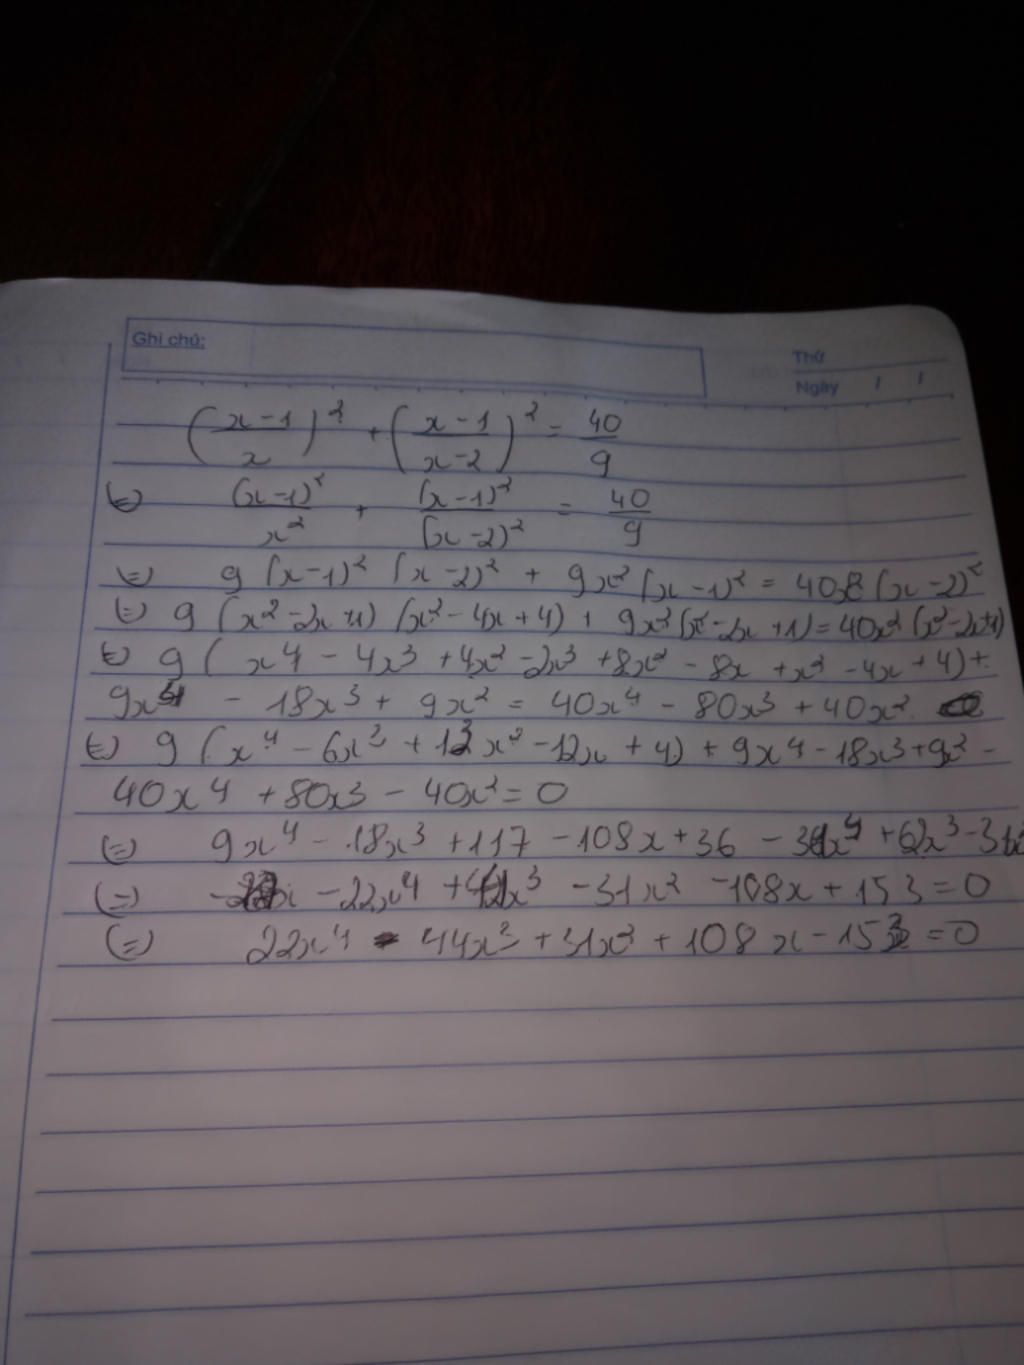 Ghi chú:
Thứ
Ngày / /
(x-1/x)² + (x-1/x-2)² = 40/9
(=) (x-1)²/x² + (x-1)²/(x-2)² = 40/9
(=) 9(x-1)² (x-2)² + 9x² (x-1)² = 40x² (x-2)²
(=) 9 (x²-2x+1) (x²-4x+4) + 9x²(x²-2x+1) = 40x² (x²-2x+1)
(=) 9 (x4 - 4x3 + 4x² - 2x3 + 8x² - 8x + x² - 4x + 4) +
9x4 - 18x3 + 9x² = 40x4 - 80x3 + 40x²
(=) 9 (x4 - 6x3 + 13x² - 12x + 4) + 9x4 - 18x3 + 9x² -
40x4 + 80x3 - 40x² = 0
(=) 9x4 - 18x3 + 117 - 108x + 36 - 31x4 + 62x3 - 31x²
(=) - 22x4 + 44x3 - 31x² - 108x + 153 = 0
(=) 22x4 - 44x3 + 31x² + 108x - 153 = 0